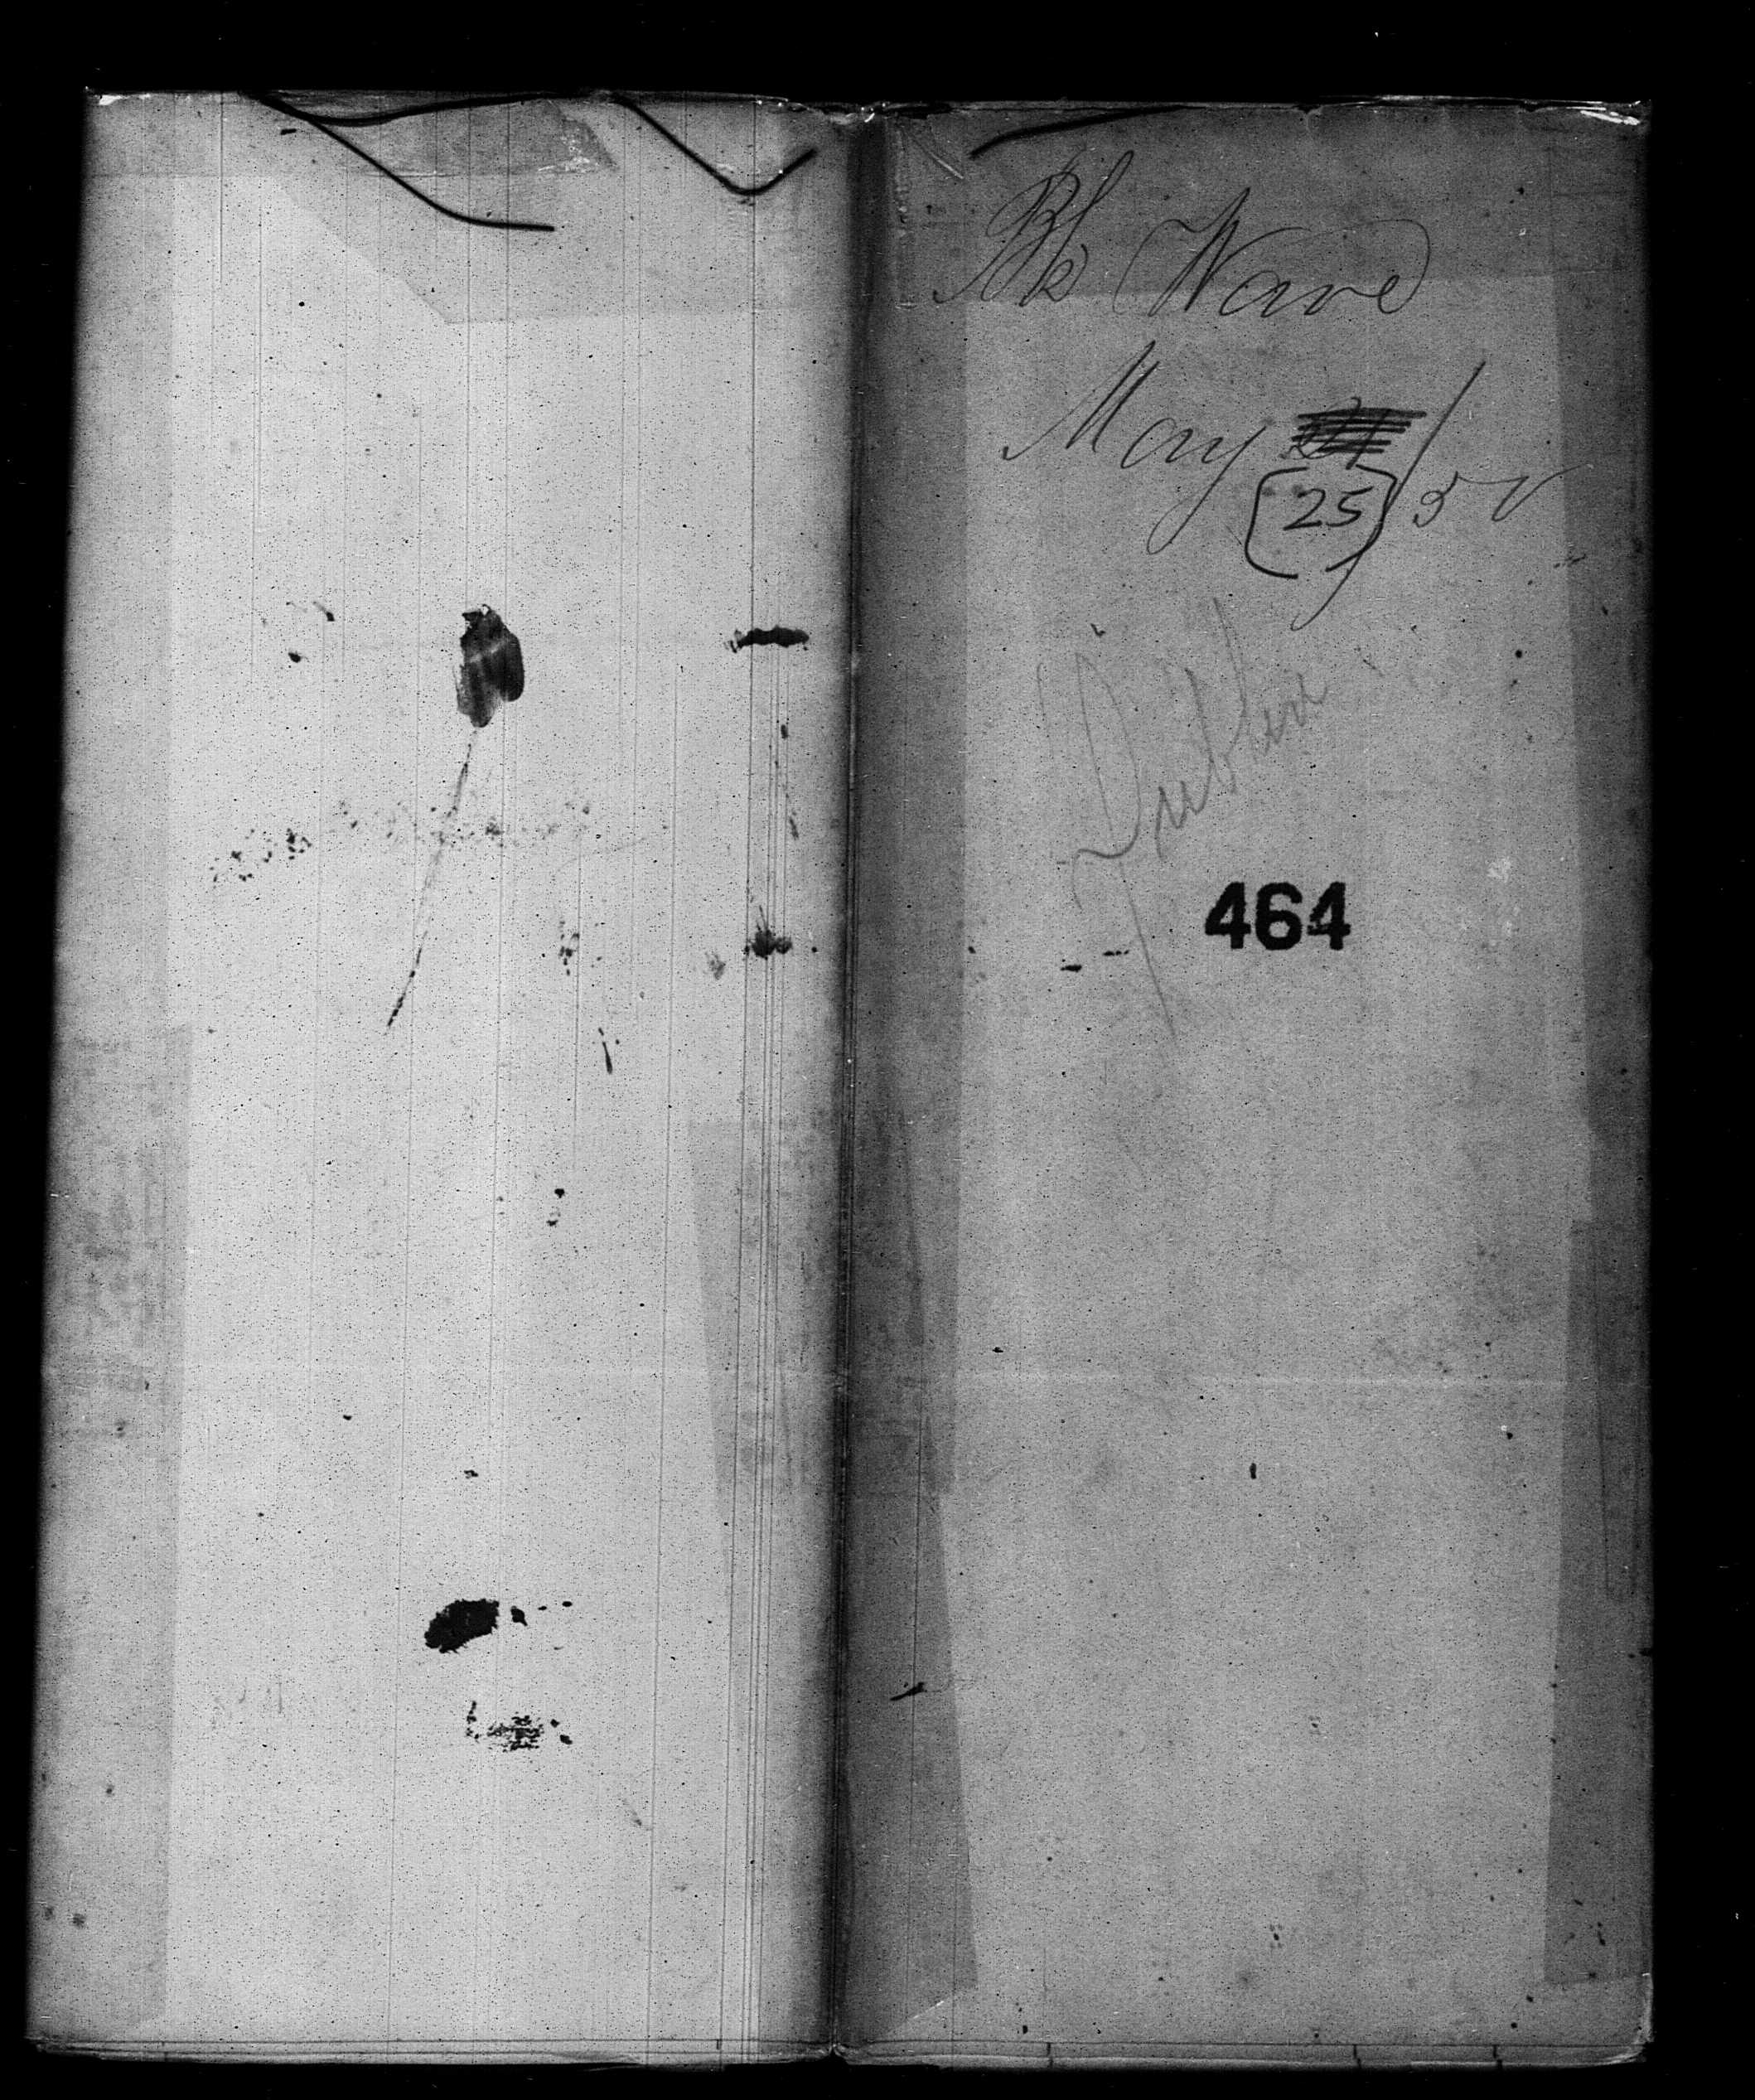 Bk Wave
May
(25)/52
Dublin
464